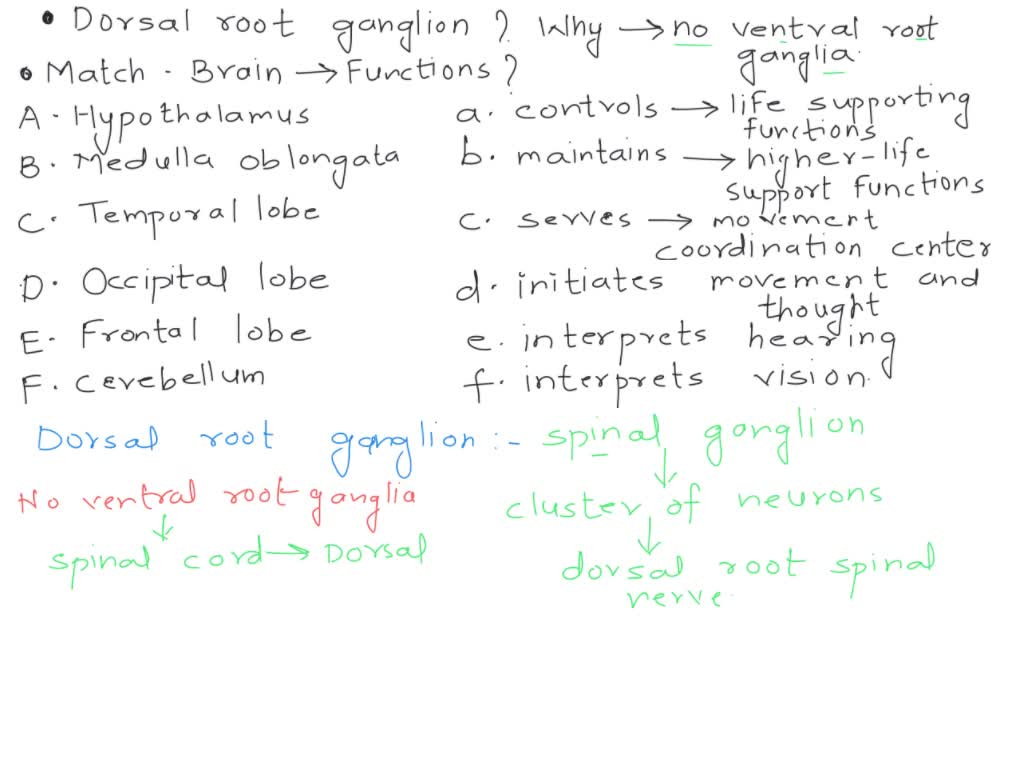 • Dorsal root ganglion ? Why → no ventral root ganglia.
• Match - Brain → Functions ?
A. Hypothalamus
a. controls → life supporting functions
B. Medulla oblongata
b. maintains → higher-life support functions
C. Temporal lobe
c. serves → movement coordination center
D. Occipital lobe
d. initiates movement and thought
E. Frontal lobe
e. interprets hearing
F. Cerebellum
f. interprets vision.
Dorsal root ganglion :- spinal ganglion
No ventral root ganglia
cluster of neurons
spinal cord → Dorsal
dorsal root spinal nerve.